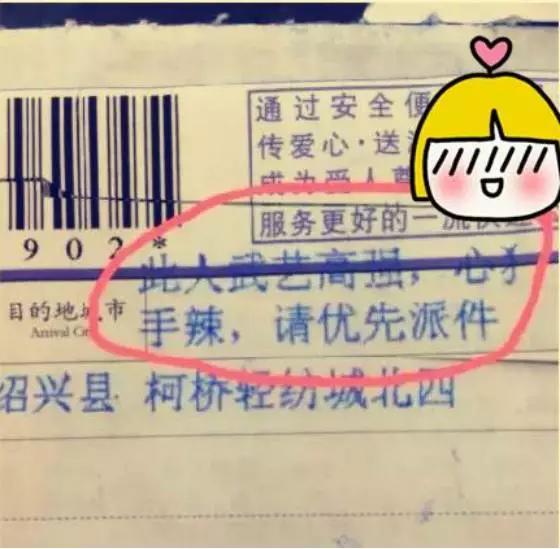 通过安全便
传爱心·送
成为受人
服务更好的一流
902*
此人武艺高强，心
目的地城市
手辣，请优先派件
Arrival Ci
绍兴县 柯桥轻纺城北四